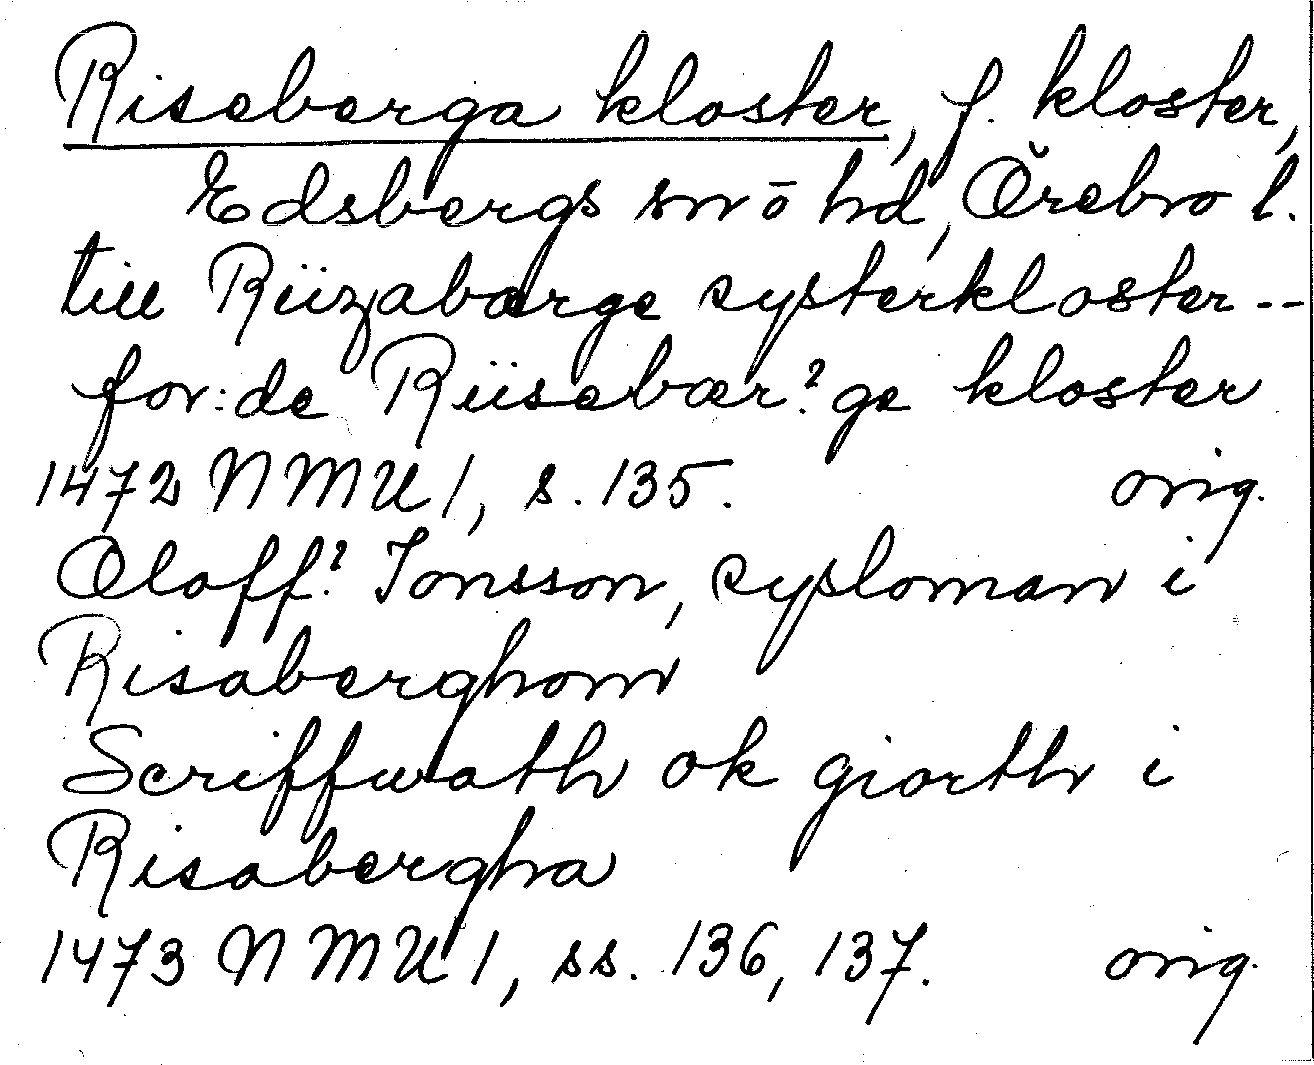 Riseberga kloster, f. kloster,
Edsbergs sn ō hd, Örebro l.
till Riizabærge systerkloster --
for:de Riisebær?ge kloster
1472 NMU 1, s. 135. orig.
Oloff? Jonsson, sysloman i
Risaberghom
Scriffwath ok giorth i
Risabergha
1473 NMU 1, ss. 136, 137. orig.